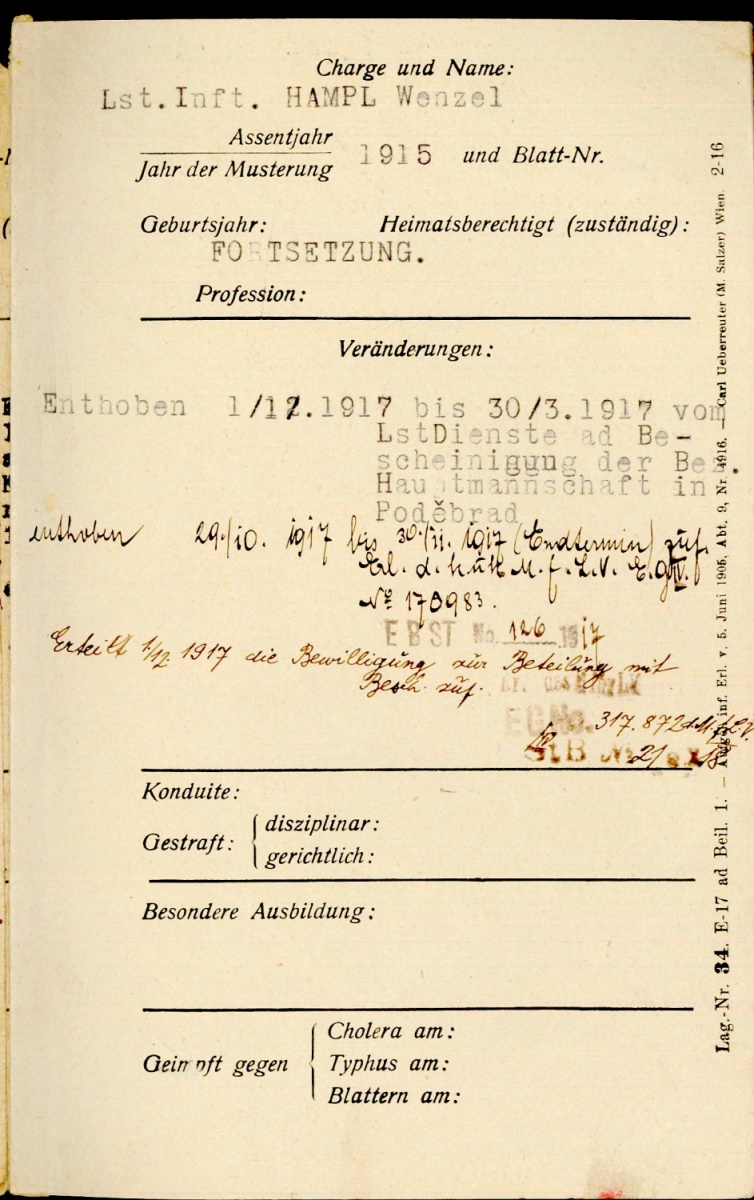 Charge und Name:
Lst.Inft. HAMPL Wenzel
Assentjahr
Jahr der Musterung 1915 und Blatt-Nr.
Geburtsjahr: Heimatsberechtigt (zuständig):
FORTSETZUNG.
Profession:
Veränderungen:
Enthoben 1/12.1917 bis 30/3.1917 vom
LstDienste ad Be-
scheinigung der Bez.
Hauptmannschaft in
Poděbrad
enthoben 29./10. 1917 bis 30./11. 1917 (Endtermin) zuf.
Erl. d. k.u.k. M. f. L.V.
Nº 170983.
EBST No. 126 1917
Erteilt 1/12. 1917 die Bewilligung zur Beteilung mit
Besch. zuf.
EGNo. 317.872 d. M. f. L.V.
21 18
Konduite:
Gestraft: disziplinar:
gerichtlich:
Besondere Ausbildung:
Geimpft gegen Cholera am:
Typhus am:
Blattern am:
Lag.-Nr. 34. E-17 ad Beil. 1. — inf. Erl. v. 5. Juni 1905, Abt. 9, Nr. 4916. — Carl Ueberreuter (M. Salzer) Wien. 2-16